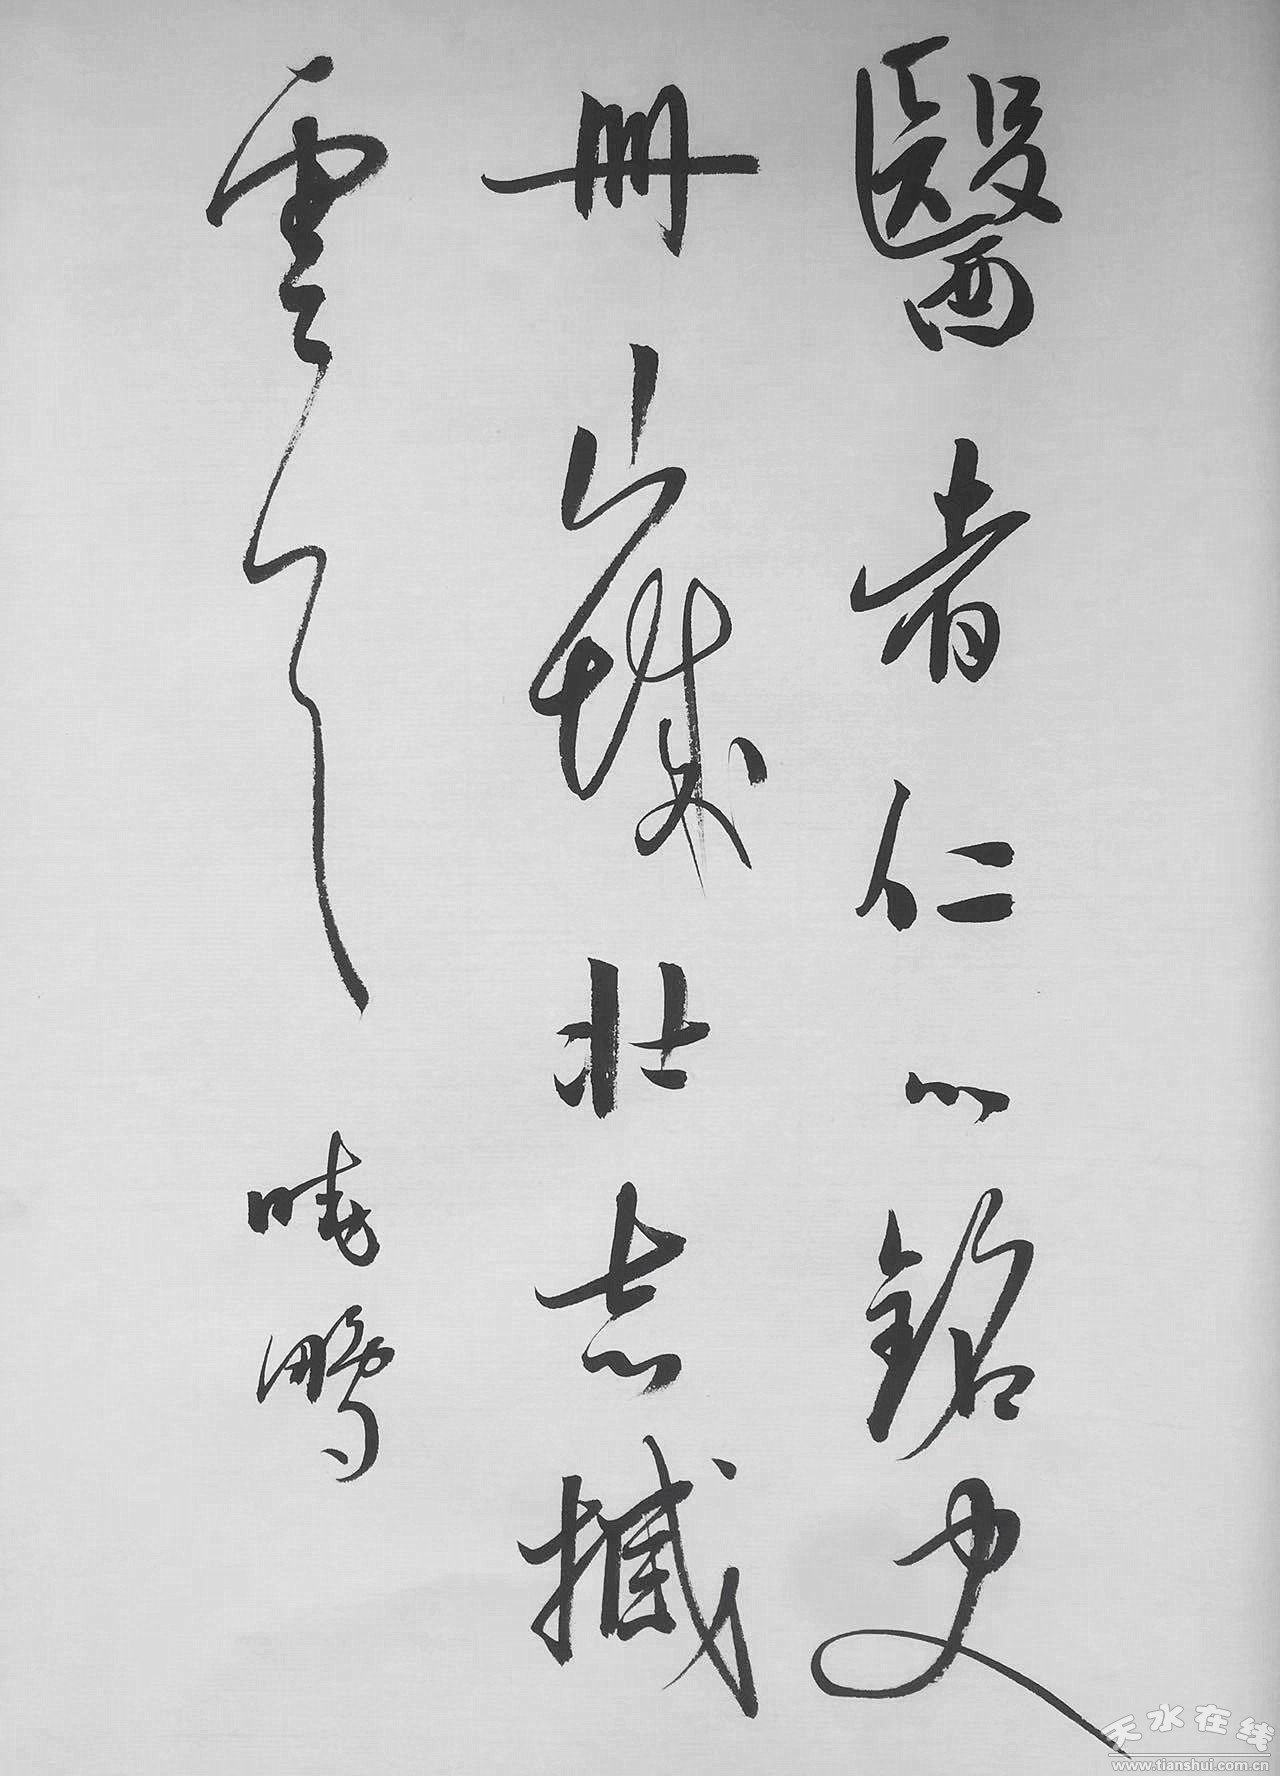 醫者仁心銘史
册山城壯志撼
雲天
曉鵬
天水在线
www.tianshui.com.cn